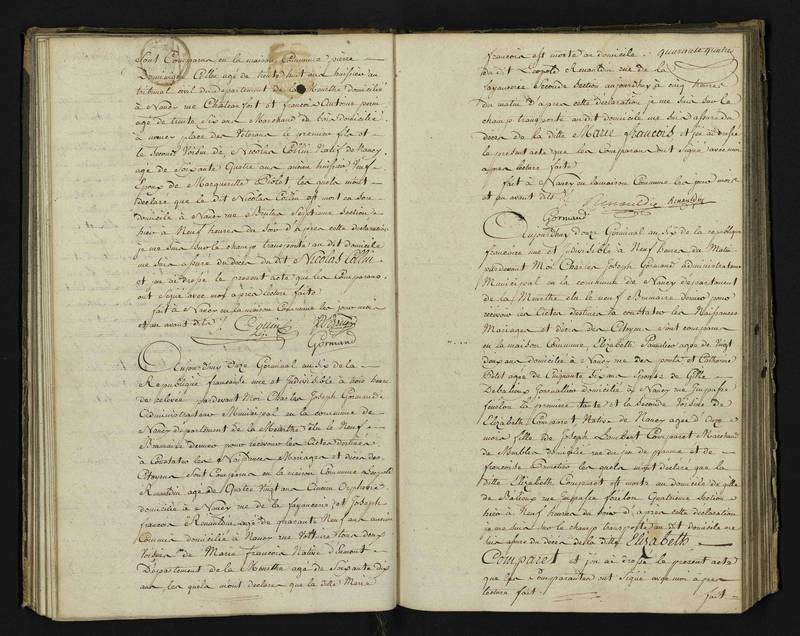 Sont Comparus en la maison Commune pierre
Dominique Collin agé de trente huit ans huissier au
tribunal civil du département de la Meurthe domicilié
à Nancy rue Châteaufort et francois Antoine
agé de trente Six ans Marchand de bois domicilié
à nancy place des le premier fils et
le Second Voisin de Nicolas Collin Natif de Nancy
agé de Soixante Quatre ans ancien huissier Veuf
Epoux de Marguerite lesquels m'ont
déclaré que le dit Nicolas Collin est mort en Son
domicile à Nancy rue Brutus Septième Section
hier à Neuf heures du Soir d'après cette déclaration
je me suis Sur le champ transporté au dit domicile
me suis assuré du décès du dit Nicolas Collin
et j'en ai dressé le présent acte que les Comparans
ont Signé avec moi après lecture faite
fait à Nancy en la maison Commune les jour mois
et an avant dits Collin
Gormand
Aujourd'huy onze Germinal an Six de la
République francaise une et Indivisible à trois heures
de relevée pardevant Moi Charles Joseph Gormand
Administrateur Municipal en la commune de
Nancy département de la Meurthe élu le Neuf
Brumaire dernier pour recevoir les Actes destinés
à Constater les Naissances Mariages et décès des
Citoyens Sont Comparus en la maison Commune Léopold
Renauldin agé de Quatre Vingt ans Orphevre
domicilié à Nancy rue de la fayancerie et Joseph
francois Renauldin agé de quarante Neuf ans ancien
Commis domicilié à Nancy rue Voltaire tous deux
Voisins de Marie francois Native
Département de la Meurthe agée de Soixante dix
ans les quels m'ont déclaré que la ditte Marie
quarante quatre
francois est morte au domicile
du dit Léopold Renauldin rue de la
fayancerie Seconde Section aujourd'huy à cinq heures
du matin d'après cette déclaration je me suis sur le
champ transporté au dit domicile me suis assuré du
décès de la ditte Marie francois et j'en ai dressé
le présent acte que les Comparans ont Signé avec moi
après lecture faite
fait à Nancy en la maison Commune les jour mois
et an avant dits Renauldin Renauldin
Gormand
Aujourd'huy onze Germinal an Six de la république
francoise une et indivisible à Neuf heures du Matin
pardevant Moi Charles Joseph Gormand administrateur
Municipal en la commune de Nancy département
de la Meurthe élu le neuf Brumaire dernier pour
recevoir les Actes destinés à constater les Naissances
Mariages et décès des Citoyens sont comparus
en la maison Commune Elizabeth agée de Vingt
ans domiciliée à Nancy rue des ponts et Catherine
Petit agée de Cinquante Six ans Epouse de Gille
Journallier domicilié à Nancy rue Impasse
foulon la première tante et la Seconde Voisine de
Elizabeth Comparet Native de Nancy agée d'onze
mois fille de Joseph Lambert Comparet Marchand
de Meubles domicilié rue du et de
francoise les quels m'ont déclaré que la
ditte Elizabeth Comparet est morte au domicile de gille
rue Impasse foulon Quatrième Section
hier à Neuf heures du Soir d'après cette déclaration
je me suis sur le champ transporté au dit domicile me
suis assuré du décès de la ditte Elizabeth
Comparet et j'en ai dressé le présent acte
que les Comparantes ont Signé avec moi après
lecture fait
fait